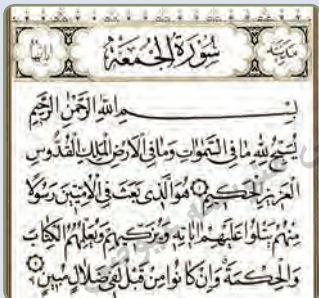 مدنية سورة الجمعة آياتها
بسم الله الرحمن الرحيم
يُسَبِّحُ لِلَّهِ مَا فِي السَّمَوَاتِ وَمَا فِي الْأَرْضِ الْمَلِكِ الْقُدُّوسِ
الْعَزِيزِ الْحَكِيمِ هُوَ الَّذِي بَعَثَ فِي الْأُمِّيِّينَ رَسُولًا
مِنْهُمْ يَتْلُوا عَلَيْهِمْ آيَاتِهِ وَيُزَكِّيهِمْ وَيُعَلِّمُهُمُ الْكِتَابَ
وَالْحِكْمَةَ وَإِنْ كَانُوا مِنْ قَبْلُ لَفِي ضَلَالٍ مُبِينٍ